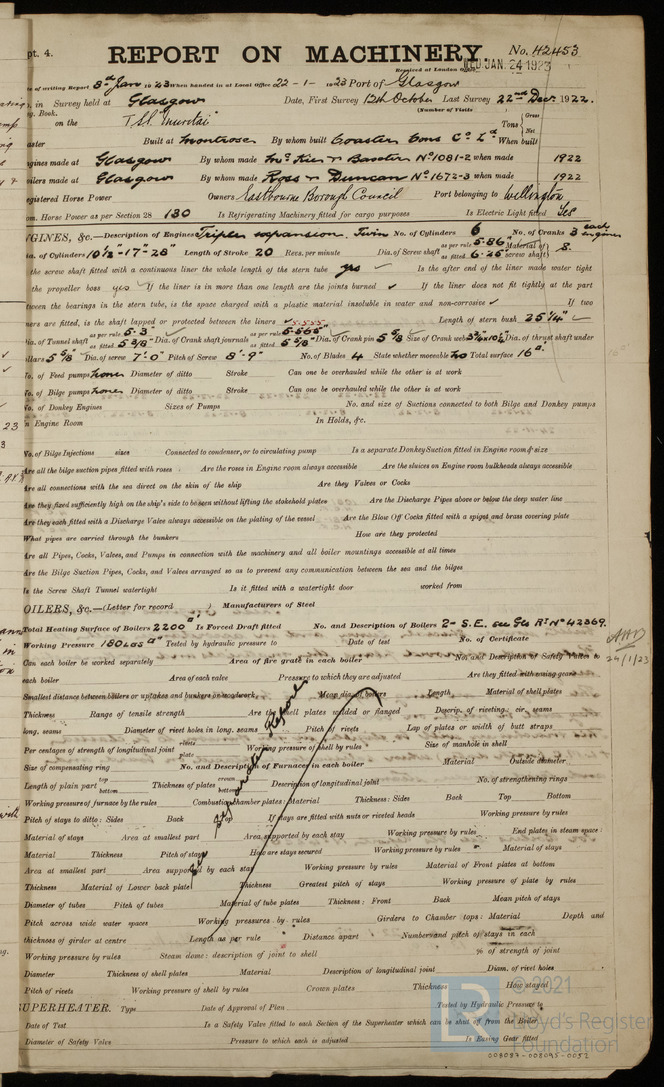 pt. 4.
REPORT ON MACHINERY. No. 42453
Received at London Office WED. JAN. 24 1923
of writing Report 8th Jan 1923 When handed in at Local Office 22-1-1923 Port of Glasgow
in Survey held at Glasgow Date, First Survey 12th October Last Survey 22nd Dec. 1922.
Book. (Number of Visits
on the T.S.S. Muritai Tons Gross Net
Built at Montrose By whom built Coaster Cons Co Ld When built
ngines made at Glasgow By whom made McKie & Baxter No 1081-2 when made 1922
oilers made at Glasgow By whom made Ross & Duncan No 1672-3 when made 1922
egistered Horse Power Owners Eastbourne Borough Council Port belonging to Wellington
om. Horse Power as per Section 28 130 Is Refrigerating Machinery fitted for cargo purposes Is Electric Light fitted Yes
NGINES, &c.—Description of Engines Triple expansion. Twin No. of Cylinders 6 No. of Cranks 3 each engine
ia. of Cylinders 10½"-17"-28" Length of Stroke 20 Revs. per minute Dia. of Screw shaft as per rule 5.86" as fitted 6.25" Material of screw shaft S.
the screw shaft fitted with a continuous liner the whole length of the stern tube yes Is the after end of the liner made water tight
the propeller boss yes If the liner is in more than one length are the joints burned If the liner does not fit tightly at the part
tween the bearings in the stern tube, is the space charged with a plastic material insoluble in water and non-corrosive If two
ners are fitted, is the shaft lapped or protected between the liners Length of stern bush 25¼"
ia. of Tunnel shaft as per rule 5.3" as fitted 5 3/8" Dia. of Crank shaft journals as per rule 5.565" as fitted 5 5/8" Dia. of Crank pin 5 5/8 Size of Crank webs Dia. of thrust shaft under
ollars 5 5/8" Dia. of screw 7'-0" Pitch of Screw 8'-9" No. of Blades 4 State whether moveable no Total surface 16
o. of Feed pumps none Diameter of ditto Stroke Can one be overhauled while the other is at work
o. of Bilge pumps none Diameter of ditto Stroke Can one be overhauled while the other is at work
o. of Donkey Engines Sizes of Pumps No. and size of Suctions connected to both Bilge and Donkey pumps
n Engine Room In Holds, &c.
No. of Bilge Injections sizes Connected to condenser, or to circulating pump Is a separate Donkey Suction fitted in Engine room & size
Are all the bilge suction pipes fitted with roses Are the roses in Engine room always accessible Are the sluices on Engine room bulkheads always accessible
Are all connections with the sea direct on the skin of the ship Are they Valves or Cocks
Are they fixed sufficiently high on the ship's side to be seen without lifting the stokehold plates Are the Discharge Pipes above or below the deep water line
Are they each fitted with a Discharge Valve always accessible on the plating of the vessel Are the Blow Off Cocks fitted with a spigot and brass covering plate
What pipes are carried through the bunkers How are they protected
Are all Pipes, Cocks, Valves, and Pumps in connection with the machinery and all boiler mountings accessible at all times
Are the Bilge Suction Pipes, Cocks, and Valves arranged so as to prevent any communication between the sea and the bilges
Is the Screw Shaft Tunnel watertight Is it fitted with a watertight door worked from
OILERS, &c.—(Letter for record ) Manufacturers of Steel
Total Heating Surface of Boilers 2200 Is Forced Draft fitted No. and Description of Boilers 2- S.E. see Gls Rt No 42369.
Working Pressure 180 lbs Tested by hydraulic pressure to Date of test No. of Certificate
24/1/23
Can each boiler be worked separately Area of fire grate in each boiler No. and Description of Safety Valves to
each boiler Area of each valve Pressure to which they are adjusted Are they fitted with easing gear
Smallest distance between boilers or uptakes and bunkers or woodwork Mean dia. of boilers Length Material of shell plates
Thickness Range of tensile strength Are the shell plates welded or flanged Descrip. of riveting: cir. seams
long. seams Diameter of rivet holes in long. seams Pitch of rivets Lap of plates or width of butt straps
Per centages of strength of longitudinal joint rivets plate Working pressure of shell by rules Size of manhole in shell
Size of compensating ring No. and Description of Furnaces in each boiler Material Outside diameter
Length of plain part top bottom Thickness of plates crown bottom Description of longitudinal joint No. of strengthening rings
Working pressure of furnace by the rules Combustion chamber plates: Material Thickness: Sides Back Top Bottom
Pitch of stays to ditto: Sides Back Top If stays are fitted with nuts or riveted heads Working pressure by rules
Material of stays Area at smallest part Area supported by each stay Working pressure by rules End plates in steam space:
Material Thickness Pitch of stays How are stays secured Working pressure by rules Material of stays
Area at smallest part Area supported by each stay Working pressure by rules Material of Front plates at bottom
Thickness Material of Lower back plate Thickness Greatest pitch of stays Working pressure of plate by rules
Diameter of tubes Pitch of tubes Material of tube plates Thickness: Front Back Mean pitch of stays
Pitch across wide water spaces Working pressures by rules Girders to Chamber tops: Material Depth and
thickness of girder at centre Length as per rule Distance apart Number and pitch of stays in each
Working pressure by rules Steam dome: description of joint to shell % of strength of joint
Diameter Thickness of shell plates Material Description of longitudinal joint Diam. of rivet holes
Pitch of rivets Working pressure of shell by rules Crown plates Thickness How stayed
See separate Report
SUPERHEATER. Type Date of Approval of Plan Tested by Hydraulic Pressure to
Date of Test Is a Safety Valve fitted to each Section of the Superheater which can be shut off from the Boiler
Diameter of Safety Valve Pressure to which each is adjusted Is Easing Gear fitted
© 2021
Lloyd's Register
Foundation
008087-008095-0052